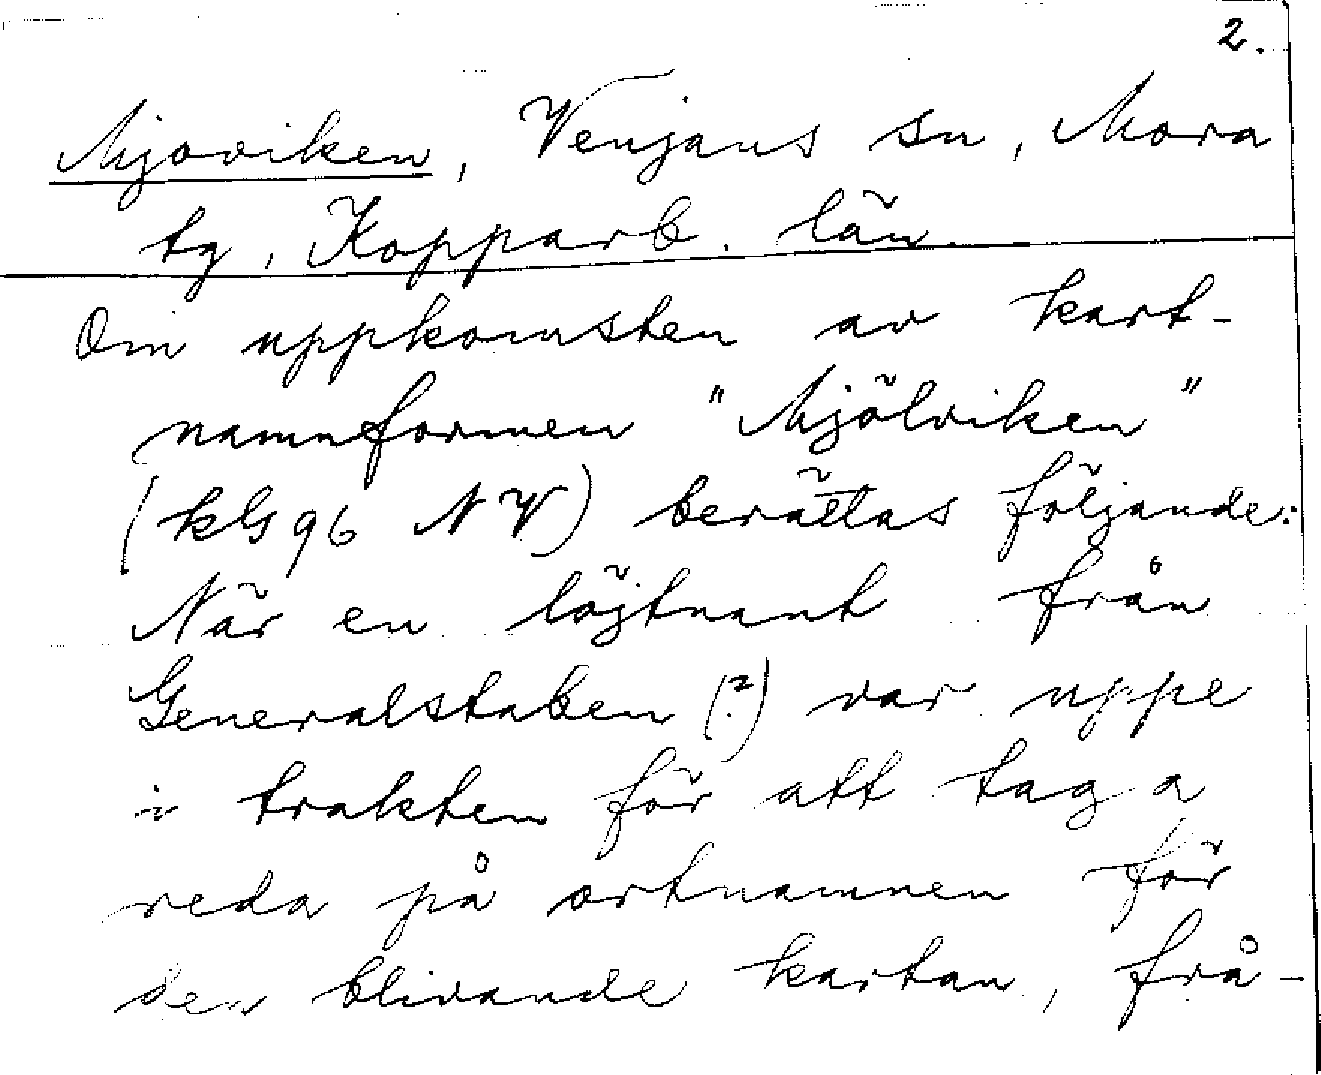 2.
Mjoviken, Venjans sn, Mora
tg, Kopparb. län.
Om uppkomsten av kart-
namnformen "Mjölviken"
(kG 96 NV) berättas följande:
När en löjtnant från
Generalstaben (?) var uppe
i trakten för att taga
reda på ortnamnen för
den blivande kartan, frå-